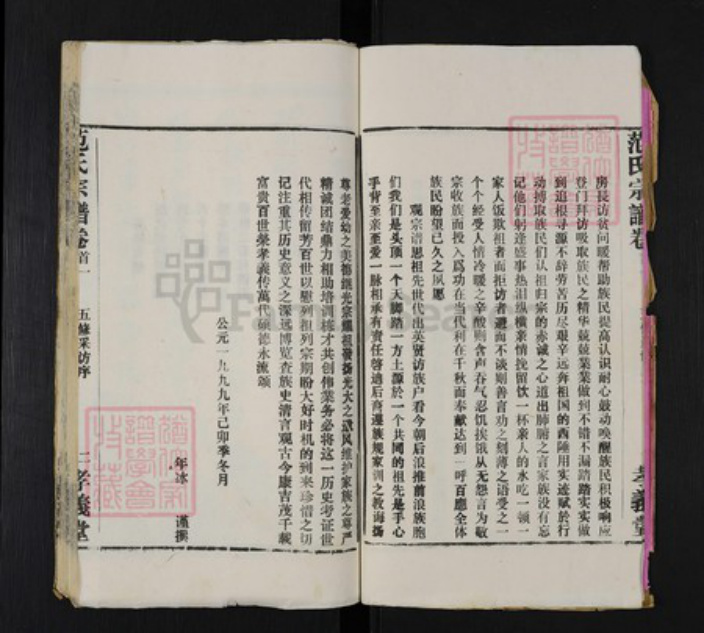 范氏宗譜卷
孝義堂
房長访贫问暖帮助族民提高认识耐心鼓动唤醒族民积极响应
登门拜访吸取族民之精华兢兢業業做到不错不漏踏踏实实做
到追根寻源不辞劳苦历尽艰辛远奔祖国的西陲用实迹赋於行
动搏取族民们认祖归宗的赤诚之心道出肺腑之言家族没有忘
记他们躬逢盛事热泪纵横亲情挽留饮一杯亲人的水吃一顿
家人饭欺祖者而拒访者避而不谈则善言劝之刻薄之语受之一
个个经受人情冷暖之辛酸则含声吞气忍饥挨饿从无怨言为敬
宗收族而投入爲功在当代利在千秋而奉献达到一呼百應全体
族民盼望已久之夙愿
观宗谱思祖先世代出英贤访族户看今朝后浪推前浪族胞
们我们是头顶一个天脚踏一方土源於一个共同的祖先是手心
手背至亲至爱一脉相承有责任啓迪后裔遵族规家训之教诲扬
尊老爱幼之美德继光宗耀祖發扬光大之武风维护家族之尊严
精诚团结鼎力相助培训栋才共创伟業务必将这一历史考证世
代相传留芳百世以慰列祖列宗期盼大好时机的到来珍惜之切
记注重其历史意义之深远博览查族史清言观古今康吉茂千載
富贵百世荣孝義传萬代硕德永流颂
公元一九九九年己卯季冬月
年冰 谨撰
范氏宗譜卷首一
五修采訪序
孝義堂